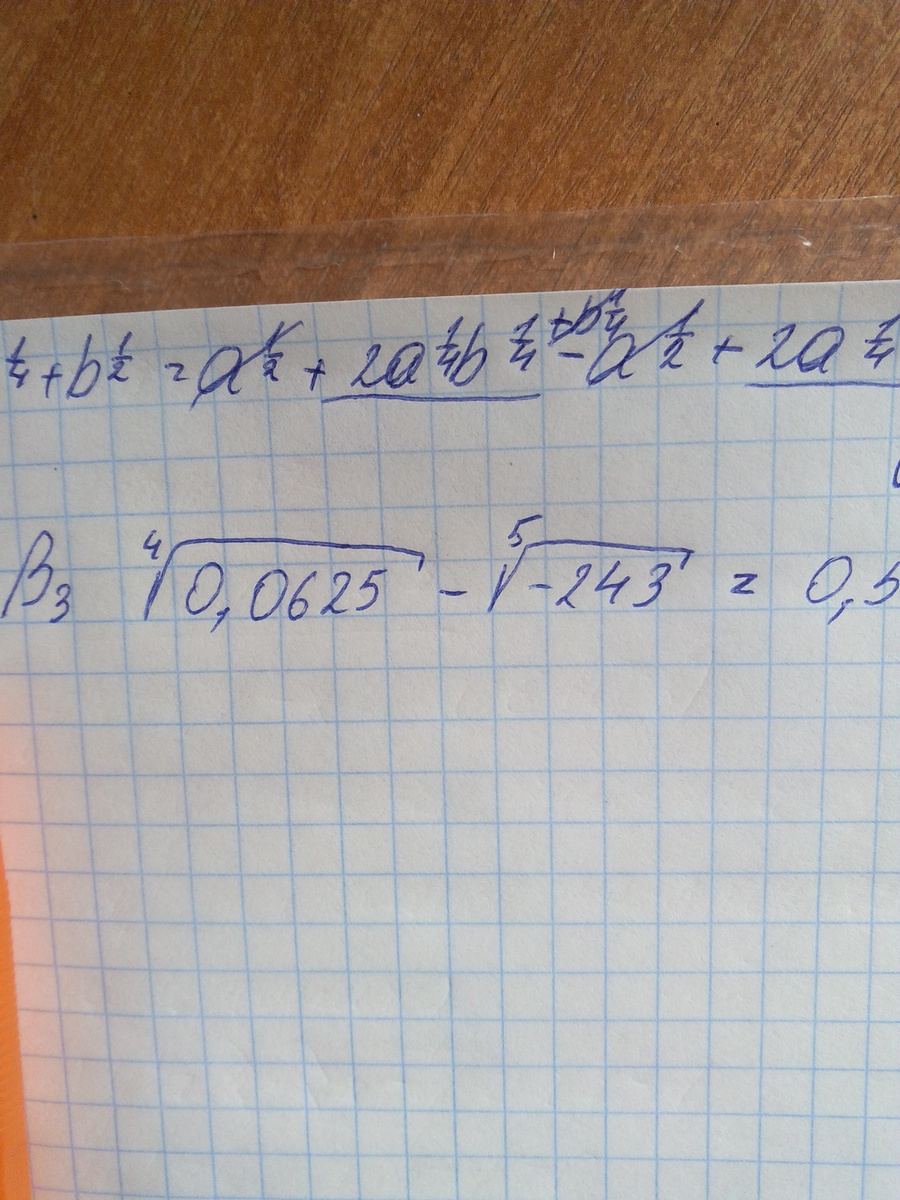 ¼ + b½ = a½ + 2a¼b¼ + b¼ - a½ + 2a¼
B3 ⁴√0,0625 - ⁵√-243 = 0,5